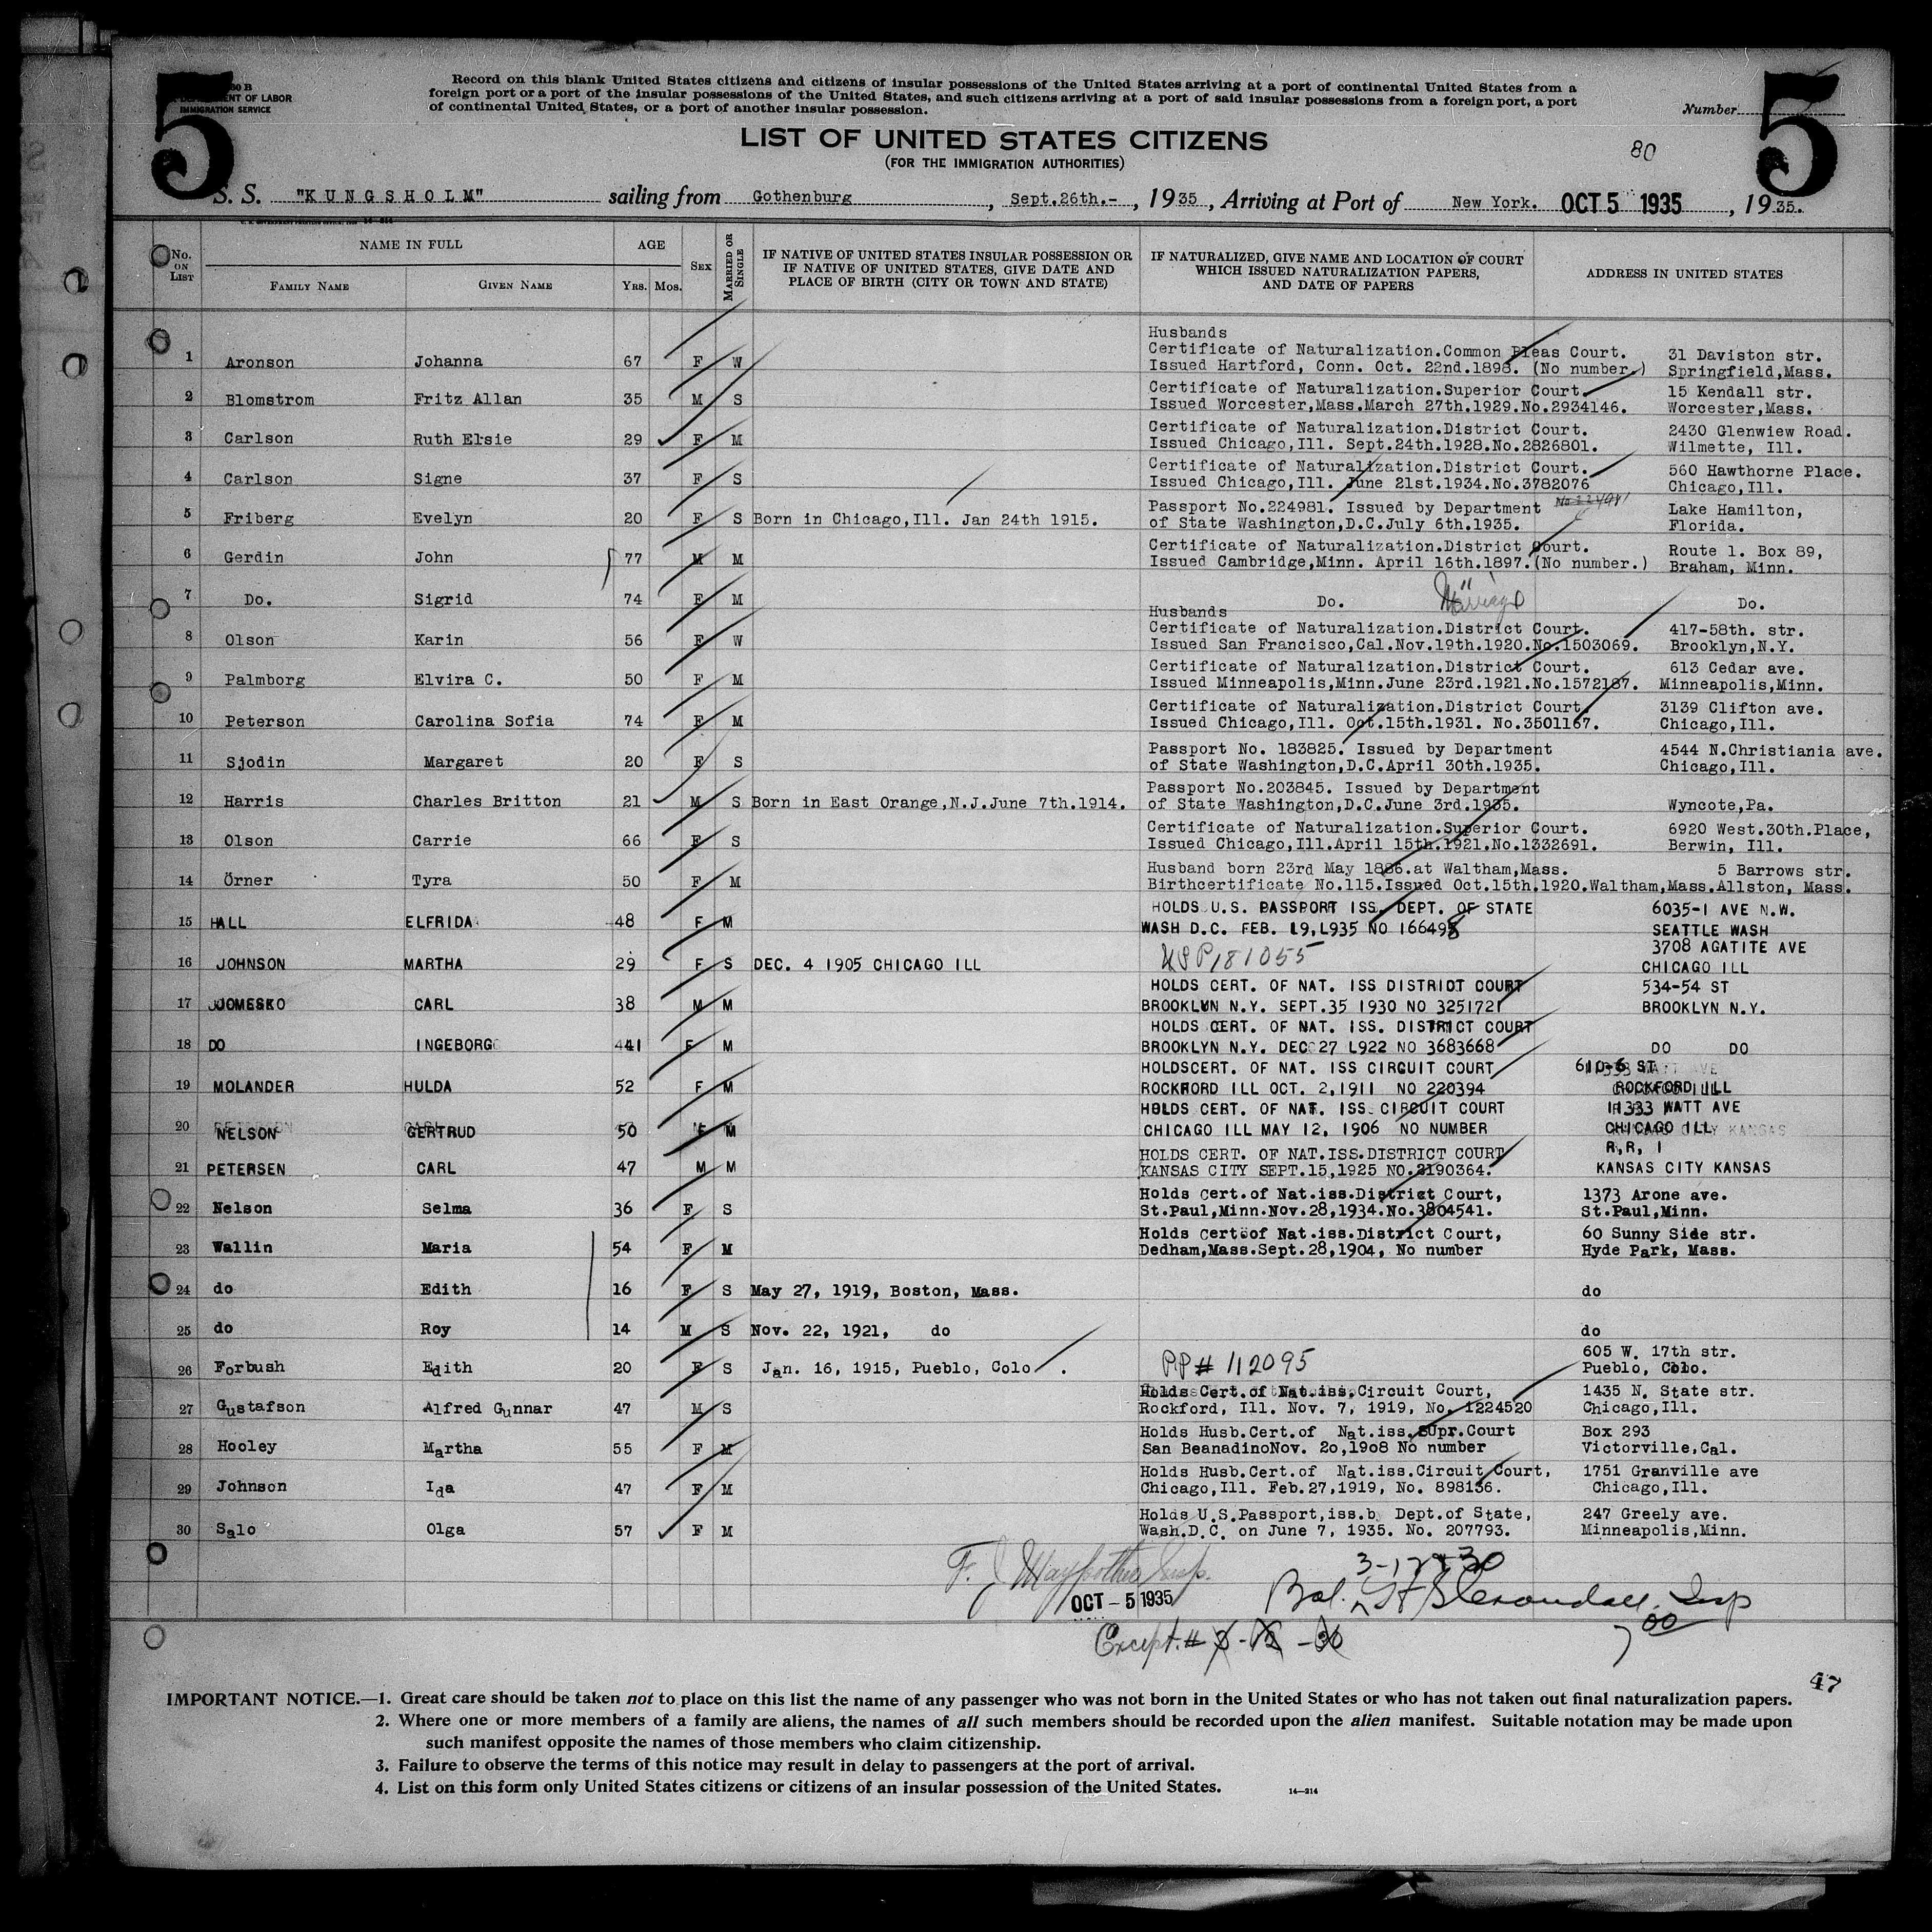 5
30 B
DEPARTMENT OF LABOR
IMMIGRATION SERVICE
Record on this blank United States citizens and citizens of insular possessions of the United States arriving at a port of continental United States from a
foreign port or a port of the insular possessions of the United States, and such citizens arriving at a port of said insular possessions from a foreign port, a port
of continental United States, or a port of another insular possession.
Number 5
LIST OF UNITED STATES CITIZENS
(FOR THE IMMIGRATION AUTHORITIES)
80
S. S. "KUNGSHOLM" sailing from Gothenburg, Sept.26th.-, 1935, Arriving at Port of New York. OCT 5 1935, 1935.
No. ON LIST
NAME IN FULL
FAMILY NAME
GIVEN NAME
AGE
YRS. MOS.
SEX
MARRIED OR SINGLE
IF NATIVE OF UNITED STATES INSULAR POSSESSION OR
IF NATIVE OF UNITED STATES, GIVE DATE AND
PLACE OF BIRTH (CITY OR TOWN AND STATE)
IF NATURALIZED, GIVE NAME AND LOCATION OF COURT
WHICH ISSUED NATURALIZATION PAPERS,
AND DATE OF PAPERS
ADDRESS IN UNITED STATES
Husbands
Certificate of Naturalization.Common Pleas Court. 31 Daviston str.
1 Aronson Johanna 67 F W Issued Hartford, Conn. Oct. 22nd.1898. (No number.) Springfield,Mass.
Certificate of Naturalization.Superior Court. 15 Kendall str.
2 Blomstrom Fritz Allan 35 M S Issued Worcester,Mass.March 27th.1929.No.2934146. Worcester,Mass.
Certificate of Naturalization.District Court. 2430 Glenwiew Road.
3 Carlson Ruth Elsie 29 F M Issued Chicago,Ill. Sept.24th.1928.No.2826801. Wilmette, Ill.
Certificate of Naturalization.District Court. 560 Hawthorne Place.
4 Carlson Signe 37 F S Issued Chicago,Ill. June 21st.1934.No.3782076 Chicago,Ill.
Passport No.224981. Issued by Department Lake Hamilton,
5 Friberg Evelyn 20 F S Born in Chicago,Ill. Jan 24th 1915. of State Washington,D.C.July 6th.1935. Florida.
Certificate of Naturalization.District Court. Route 1. Box 89,
6 Gerdin John 77 M M Issued Cambridge,Minn. April 16th.1897.(No number.) Braham, Minn.
7 Do. Sigrid 74 F M Do. " Marriage Do.
Husbands
Certificate of Naturalization.District Court. 417-58th. str.
8 Olson Karin 56 F W Issued San Francisco,Cal.Nov.19th.1920.No.1503069. Brooklyn,N.Y.
Certificate of Naturalization.District Court. 613 Cedar ave.
9 Palmborg Elvira C. 50 F M Issued Minneapolis,Minn.June 23rd.1921.No.1572187. Minneapolis,Minn.
Certificate of Naturalization.District Court. 3139 Clifton ave.
10 Peterson Carolina Sofia 74 F M Issued Chicago,Ill. Oct.15th.1931. No.3501167. Chicago,Ill.
Passport No. 183825. Issued by Department 4544 N.Christiania ave.
11 Sjodin Margaret 20 F S of State Washington,D.C.April 30th.1935. Chicago,Ill.
Passport No.203845. Issued by Department
12 Harris Charles Britton 21 M S Born in East Orange,N.J.June 7th.1914. of State Washington,D.C.June 3rd.1935. Wyncote,Pa.
Certificate of Naturalization.Superior Court. 6920 West.30th.Place,
13 Olson Carrie 66 F S Issued Chicago,Ill.April 15th.1921.No.1332691. Berwin, Ill.
Husband born 23rd May 1886.at Waltham,Mass. 5 Barrows str.
14 Örner Tyra 50 F M Birthcertificate No.115.Issued Oct.15th.1920.Waltham,Mass.Allston, Mass.
HOLDS U.S. PASSPORT ISS. DEPT. OF STATE 6035-1 AVE N.W.
15 HALL ELFRIDA 48 F M WASH D.C. FEB. 19,L935 NO 166498 SEATTLE WASH
3708 AGATITE AVE
16 JOHNSON MARTHA 29 F S DEC. 4 1905 CHICAGO ILL USP181055 CHICAGO ILL
HOLDS CERT. OF NAT. ISS DISTRICT COURT 534-54 ST
17 JOMESKO CARL 38 M M BROOKLUN N.Y. SEPT.35 1930 NO 3251721 BROOKLYN N.Y.
HOLDS CERT. OF NAT. ISS. DISTRICT COURT
18 DO INGEBORG 41 F M BROOKLYN N.Y. DEC 27 L922 NO 3683668 DO DO
HOLDSCERT. OF NAT. ISS CIRCUIT COURT 610-6 ST
19 MOLANDER HULDA 52 F M ROCKFORD ILL OCT. 2,1911 NO 220394 ROCKFORD ILL
HOLDS CERT. OF NAT. ISS. CIRCUIT COURT 11333 WATT AVE
20 NELSON GERTRUD 50 F M CHICAGO ILL MAY 12, 1906 NO NUMBER CHICAGO ILL
HOLDS CERT. OF NAT.ISS.DISTRICT COURT R,R, 1
21 PETERSEN CARL 47 M M KANSAS CITY SEPT.15,1925 NO.2190364. KANSAS CITY KANSAS
Holds Cert.of Nat.iss.District Court, 1373 Arone ave.
22 Nelson Selma 36 F S St.Paul,Minn.Nov.28,1934.No.3804541. St.Paul,Minn.
Holds Certof Nat.iss.District Court, 60 Sunny Side str.
23 Wallin Maria 54 F M Dedham,Mass.Sept.28,1904, No number Hyde Park, Mass.
24 do Edith 16 F S May 27, 1919, Boston, Mass. do
25 do Roy 14 M S Nov. 22, 1921, do do
605 W. 17th str.
26 Forbush Edith 20 F S Jan. 16, 1915, Pueblo, Colo. PP# 112095 Pueblo, Colo.
Holds Cert.of Nat.iss.Circuit Court, 1435 N. State str.
27 Gustafson Alfred Gunnar 47 M S Rockford, Ill. Nov. 7, 1919, No. 1224520 Chicago,Ill.
Holds Husb.Cert.of Nat.iss.SUpr.Court Box 293
28 Hooley Martha 55 F M San BeanadinoNov. 20,1908 No number Victorville,Cal.
Holds Husb.Cert.of Nat.iss.Circuit Court, 1751 Granville ave
29 Johnson Ida 47 F M Chicago,Ill. Feb.27,1919, No. 898136. Chicago,Ill.
Holds U.S.Passport,iss.b Dept.of State, 247 Greely ave.
30 Salo Olga 57 F M Wash.D.C. on June 7, 1935. No. 207793. Minneapolis,Minn.
OCT - 5 1935
Bal. Insp
Except. #
47
IMPORTANT NOTICE.—1. Great care should be taken not to place on this list the name of any passenger who was not born in the United States or who has not taken out final naturalization papers.
2. Where one or more members of a family are aliens, the names of all such members should be recorded upon the alien manifest. Suitable notation may be made upon
such manifest opposite the names of those members who claim citizenship.
3. Failure to observe the terms of this notice may result in delay to passengers at the port of arrival.
4. List on this form only United States citizens or citizens of an insular possession of the United States.
14—214